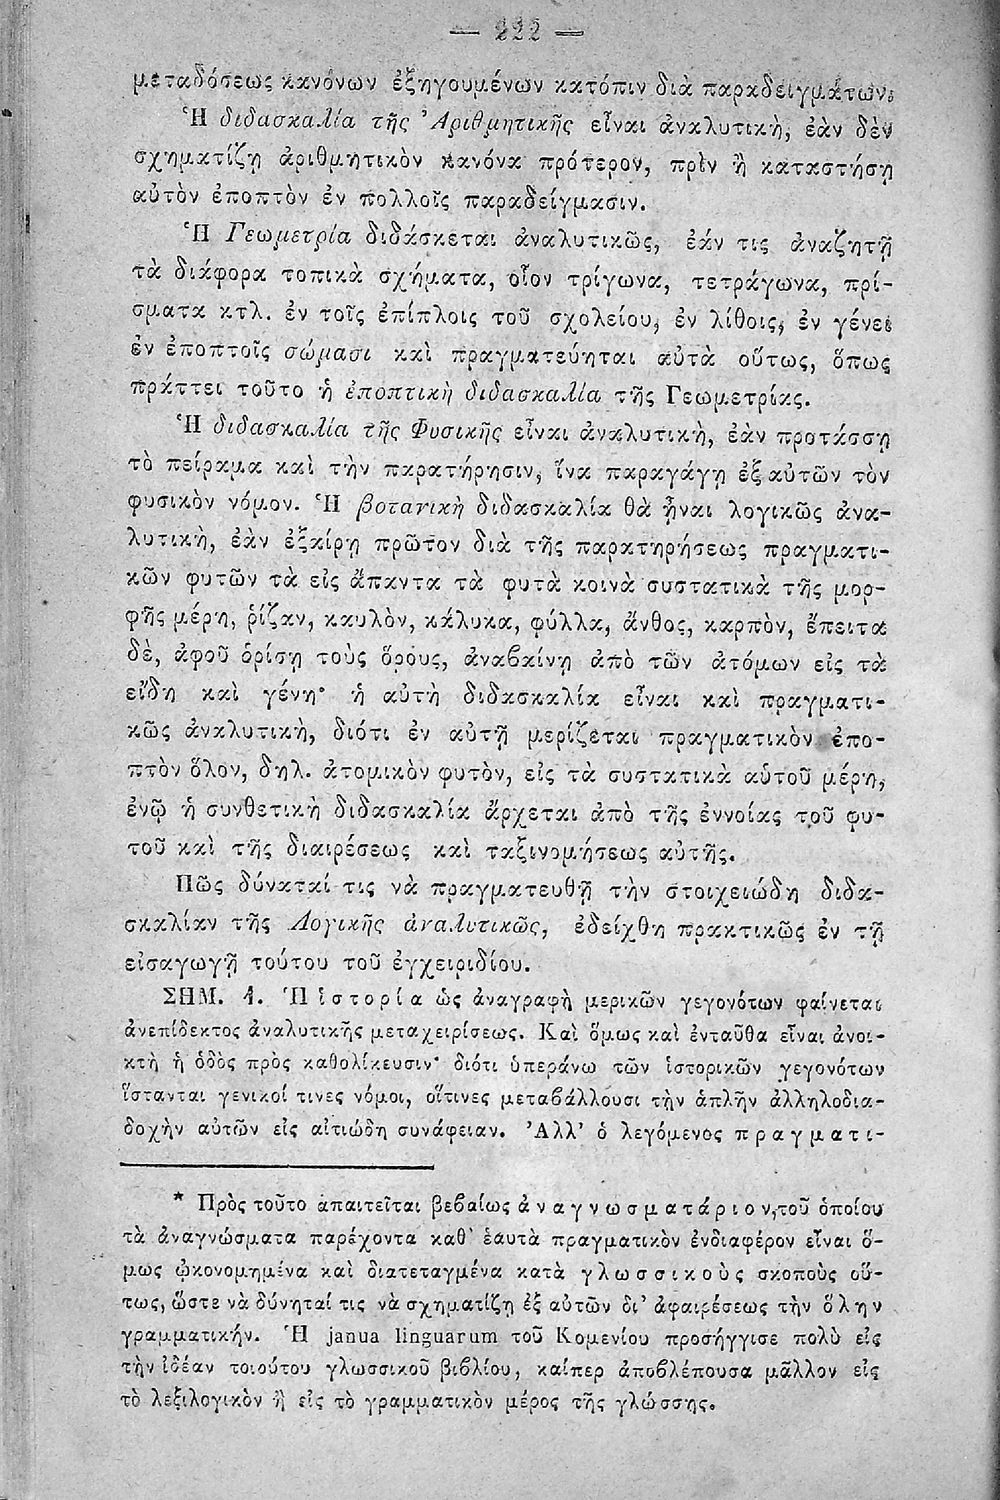 — 222 —
μεταδόσεως κανόνων ἐξηγουμένων κατόπιν διὰ παραδειγμάτων.
Ἡ διδασκαλία τῆς Ἀριθμητικῆς εἶναι ἀναλυτικὴ, ἐὰν δὲν
σχηματίζῃ ἀριθμητικὸν κανόνα πρότερον, πρὶν ἢ καταστήσῃ
αὐτὸν ἐποπτὸν ἐν πολλοῖς παραδείγμασιν.
Ἡ Γεωμετρία διδάσκεται ἀναλυτικῶς, ἐάν τις ἀναζητῇ
τὰ διάφορα τοπικὰ σχήματα, οἷον τρίγωνα, τετράγωνα, πρί-
σματα κτλ. ἐν τοῖς ἐπίπλοις τοῦ σχολείου, ἐν λίθοις, ἐν γένει
ἐν ἐποπτοῖς σώμασι καὶ πραγματεύηται αὐτὰ οὕτως, ὅπως
πράττει τοῦτο ἡ ἐποπτικὴ διδασκαλία τῆς Γεωμετρίας.
Ἡ διδασκαλία τῆς Φυσικῆς εἶναι ἀναλυτικὴ, ἐὰν προτάσσῃ
τὸ πείραμα καὶ τὴν παρατήρησιν, ἵνα παραγάγῃ ἐξ αὐτῶν τὸν
φυσικὸν νόμον. Ἡ βοτανικὴ διδασκαλία θὰ ᾖναι λογικῶς ἀνα-
λυτικὴ, ἐὰν ἐξαίρῃ πρῶτον διὰ τῆς παρατηρήσεως πραγματι-
κῶν φυτῶν τὰ εἰς ἅπαντα τὰ φυτὰ κοινὰ συστατικὰ τῆς μορ-
φῆς μέρη, ῥίζαν, καυλὸν, κάλυκα, φύλλα, ἄνθος, καρπὸν, ἔπειτα
δὲ, ἀφοῦ ὁρίσῃ τοὺς ὅρους, ἀναβαίνῃ ἀπὸ τῶν ἀτόμων εἰς τὰ
εἴδη καὶ γένη· ἡ αὐτὴ διδασκαλία εἶναι καὶ πραγματι-
κῶς ἀναλυτικὴ, διότι ἐν αὐτῇ μερίζεται πραγματικὸν ἐπο-
πτὸν ὅλον, δηλ. ἀτομικὸν φυτὸν, εἰς τὰ συστατικὰ αὑτοῦ μέρη,
ἐνῷ ἡ συνθετικὴ διδασκαλία ἄρχεται ἀπὸ τῆς ἐννοίας τοῦ φυ-
τοῦ καὶ τῆς διαιρέσεως καὶ ταξινομήσεως αὐτῆς.
Πῶς δύναταί τις νὰ πραγματευθῇ τὴν στοιχειώδη διδα-
σκαλίαν τῆς Λογικῆς ἀναλυτικῶς, ἐδείχθη πρακτικῶς ἐν τῇ
εἰσαγωγῇ τούτου τοῦ ἐγχειριδίου.
ΣΗΜ. 1. Ἡ ἱστορία ὡς ἀναγραφὴ μερικῶν γεγονότων φαίνεται
ἀνεπίδεκτος ἀναλυτικῆς μεταχειρίσεως. Καὶ ὅμως καὶ ἐνταῦθα εἶναι ἀνοι-
κτὴ ἡ ὁδὸς πρὸς καθολίκευσιν· διότι ὑπεράνω τῶν ἱστορικῶν γεγονότων
ἵστανται γενικοί τινες νόμοι, οἵτινες μεταβάλλουσι τὴν ἁπλῆν ἀλληλοδια-
δοχὴν αὐτῶν εἰς αἰτιώδη συνάφειαν. Ἀλλ' ὁ λεγόμενος πραγματι-
* Πρὸς τοῦτο ἀπαιτεῖται βεβαίως ἀναγνωσματάριον, τοῦ ὁποίου
τὰ ἀναγνώσματα παρέχοντα καθ' ἑαυτὰ πραγματικὸν ἐνδιαφέρον εἶναι ὅ-
μως ᾠκονομημένα καὶ διατεταγμένα κατὰ γλωσσικοὺς σκοποὺς οὕ-
τως, ὥστε νὰ δύνηταί τις νὰ σχηματίζῃ ἐξ αὐτῶν δι' ἀφαιρέσεως τὴν ὅλην
γραμματικήν. Ἡ janua linguarum τοῦ Κομενίου προσήγγισε πολὺ εἰς
τὴν ἰδέαν τοιούτου γλωσσικοῦ βιβλίου, καίπερ ἀποβλέπουσα μᾶλλον εἰς
τὸ λεξιλογικὸν ἢ εἰς τὸ γραμματικὸν μέρος τῆς γλώσσης.